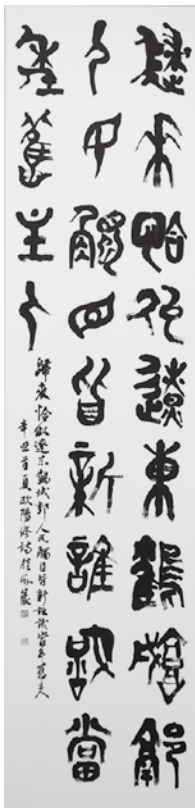 歸來恰似遼東鶴城郭
人民觸目皆新誰識當
年舊主人
歸來恰似遼東鶴城郭人民觸目皆新誰識當年舊主人
辛丑首夏歐陽修詩